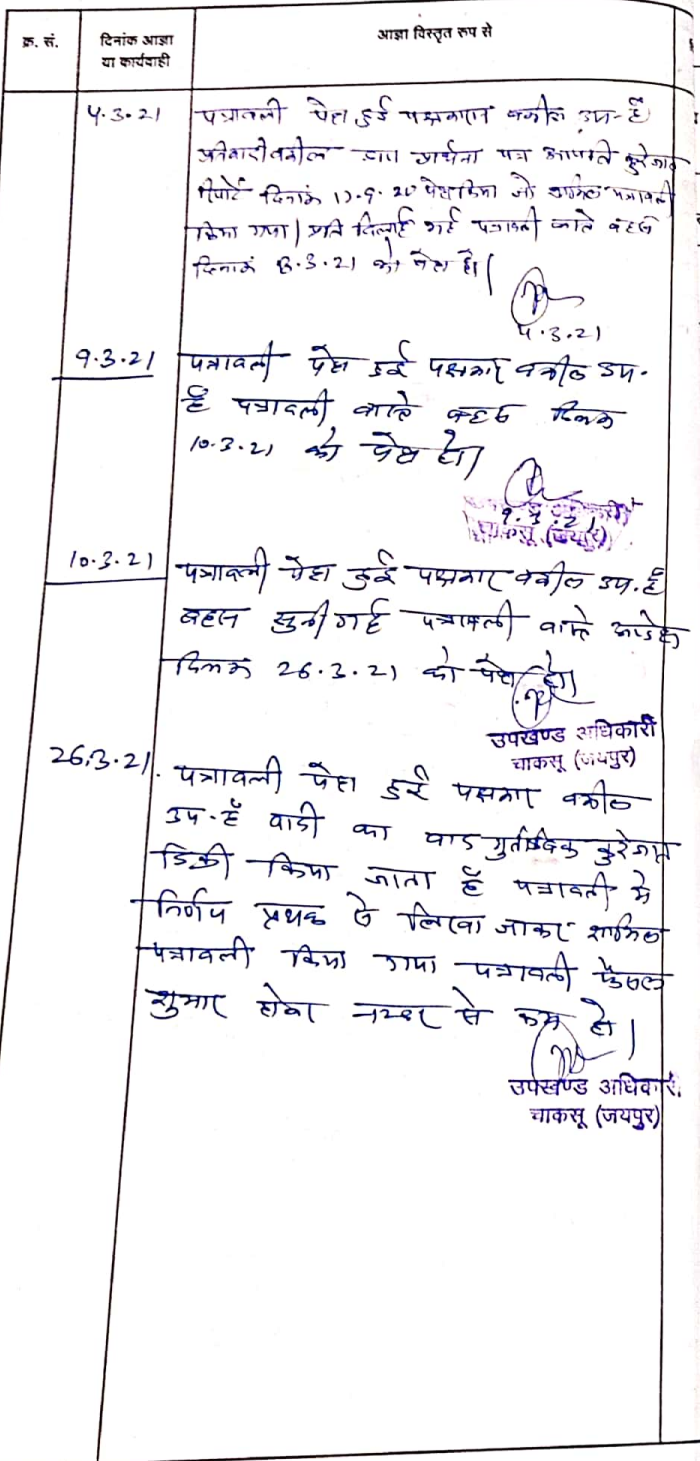 क्र. सं. दिनांक आज्ञा आज्ञा विस्तृत रुप से
या कार्यवाही
4.3.21 पत्रावली पेश हुई पक्षकारान वकील उप-है
प्रतिवादी वकील द्वारा प्रार्थना पत्र आपत्ति कुरेजात
रिपोर्ट दिनांक 17.9.20 पेश किया जो शामिल पत्रावली
किया गया| प्रति दिलाई गई पत्रावली वास्ते बहस
दिनांक 8.3.21 को पेश हो|
4.3.21
9.3.21 पत्रावली पेश हुई पक्षकार वकील उप.
है पत्रावली वास्ते बहस दिनांक
10.3.21 को पेश हो|
9.3.21
चाकसू (जयपुर)
10.3.21 पत्रावली पेश हुई पक्षकार वकील उप.है
बहस सुनी गई पत्रावली वास्ते आदेश
दिनांक 26.3.21 को पेश हो|
उपखण्ड अधिकारी
चाकसू (जयपुर)
26.3.21. पत्रावली पेश हुई पक्षकार वकील
उप-है वादी का वाद कुरेजात
डिक्री किया जाता है पत्रावली मे
निर्णय प्रथक से लिखा जाकर शामिल
पत्रावली किया गया पत्रावली फैसल
शुमार होकर नम्बर से कम हो|
उपखण्ड अधिकारी
चाकसू (जयपुर)